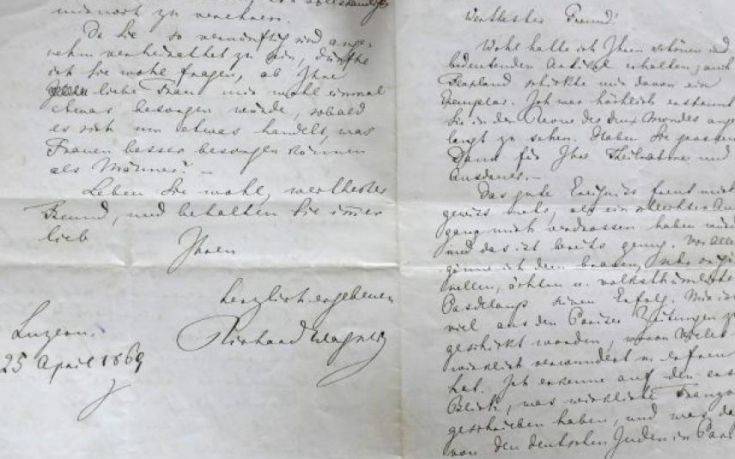 zu verehren.
Da Sie so vernünftig sind, ange-
nehm verheirathet zu sein, dürfte
ich Sie wohl fragen, ob Ihre
liebe Frau mir wohl einmal
etwas besorgen würde, sobald
es sich um etwas handelt, was
Frauen besser besorgen können
als Männer? —
Leben Sie wohl, werthester
Freund, und behalten Sie immer
lieb
Ihren
herzlich ergebenen
Richard Wagner
Luzern.
25 April 1869
Werthester Freund!
Wohl hatte ich Ihren schönen und
bedeutenden Artikel erhalten; auch
schickte mir davon ein
Exemplar. Ich war höchlich erstaunt
Sie in der Revue des deux Mondes ange
langt zu sehen. Haben Sie grossen
Dank für Ihre Theilnahme und
Ausdauer. —
Das gute Ereigniss freut mich
gewiss mehr, als ein schlechter Aus
gang mich verdrossen haben würde
und das ist bereits genug. Vor Allem
gönne ich dem braven, sehr origi
nellen, ächten u. volksthümlichen
Pasdeloup seinen Erfolg. Mir ist
viel aus den Pariser Zeitungen zu
geschickt worden, wovon Vieles
wirklich verwundert u. erfreut
hat. Ich erkenne auf den ersten
Blick, was wirkliche Franzo
geschrieben haben, und was da
von den deutschen Juden in Paris